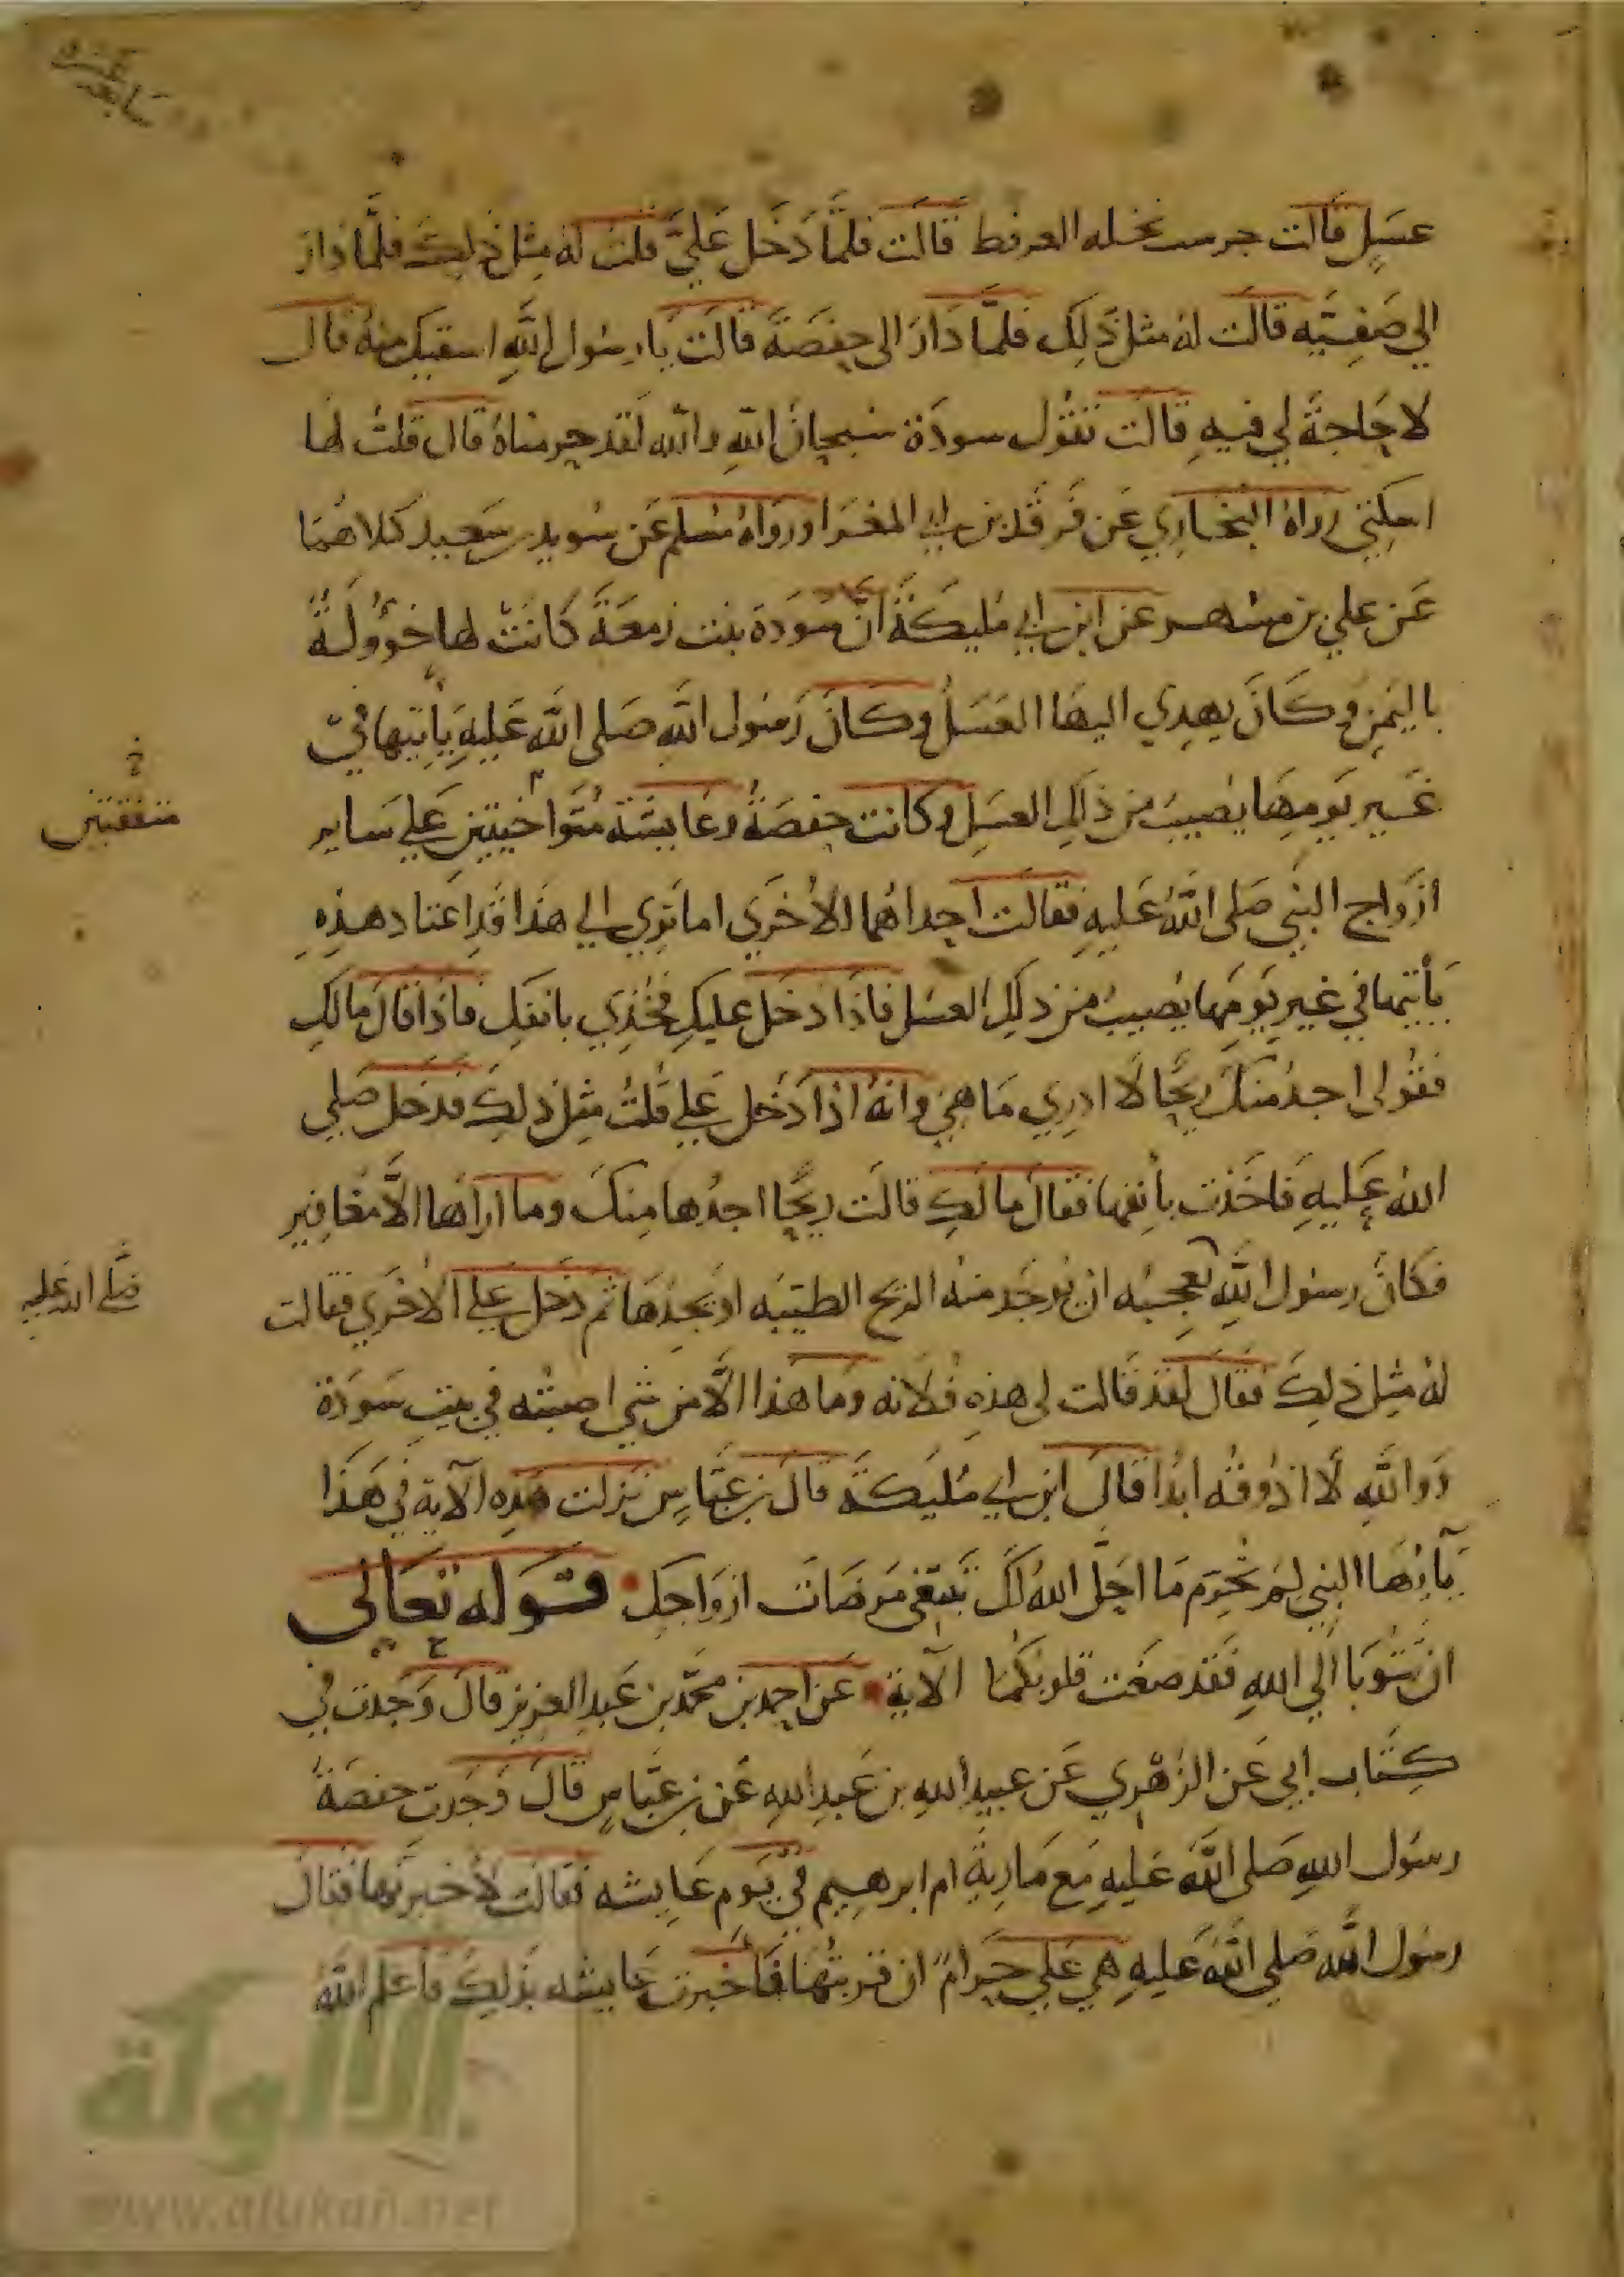 سابعة عشرة
عَسَلٍ قالت جرست نحله العرفط قالت فلمَّا دَخَل عَليَّ قلت له مِثل ذلك فلمَّا دار
الي صَفِيَّه قالت له مثل ذَلِك فلمّا دَارَ الى حفصَة قالت يا رسُول اللهِ اسقيك منهُ قال
لا حَاجةَ لي فيهِ قالت تقول سودَة سُبحانَ اللهِ والله لقد حرمناهُ قال قلتُ لها
اسكتي رواهُ البُخاري عَن فَرقَد بن ابي المغرا ورواهُ مسلم عَن سُويد بن سَعيد كلاهُما
عَن علي بن مسهر عَن ابن ابي مُليكَة انّ سَودَة بنت زمعَة كانَتْ لها خوُولَةٌ
باليَمن وكَانَ يهدي اليهَا العَسَلُ وكانَ رَسُول اللهِ صَلى الله عَليهِ يأتيها في
غَير يَومِهَا يصيبُ من ذلك العسَل وكانت حفصَةُ وعَايشَة مُتَواخيتين عَلى سَاير
متفقتين خ
ازواج النبي صَلى اللهُ عَليهِ فقالت احداهُما للاخرَي اما تري الي هذا قد اعتاد هذِهِ
يَأتيها في غير يَومِهَا يُصيبُ من ذلك العسَل فاذَا دَخَل عليكِ فخُذي بانفكِ فاذا قال مالكِ
فقولى اجدُ منكَ ريحًا لا ادري مَا هي وانهُ اذا دَخَل عَلي قلتُ مثل ذلك فدخل صَلي
اللهُ عَليهِ فاخَذت بأنفها فقال ما لكِ قالَت ريحًا اجدُها مِنكَ وما اراها الاَّ مغافير
فكانَ رسُول اللهِ يعجبُه ان يُوجَد منه الريح الطيبَه اذ يَجدُهَا ثم دخل على الاخرَي فقالت
صَلى الله عَليه
لهُ مِثل ذلكَ فقال لقد قالت لى هذهِ فُلانه وما هذا الاَّ من شي اصبتُه في بيتِ سَودَة
وَواللهِ لا اذُوقُه ابدًا قالَ ابن ابي مُليَكةَ قال بن عبَّاسٍ نزلت هَذِه الآية في هَذا
يَآيُّهَا النبي لِمَ تُحَرّم مَا احَلَّ اللهُ لكَ تبتغى مَرضَات ازوَاجك قوله تعَالى
ان تتُوبَا الي اللهِ فقد صغَت قلوبكُما الآية عَن احمد بن محمَّد بن عَبد العزيز قال وَجَدت في
كِتَاب ابي عَن الزهري عَن عبيد اللهِ بن عَبد الله عَن بن عبَّاسٍ قالَ وَجَدت حفصَةُ
رسُول اللهِ صَلى اللهُ عَليهِ مَع مَاريةَ ام ابرهيم في يَوم عَايشه فقالت لأخبرنَّها فقال
رسُول الله صَلي اللهُ عَليهِ هي عَلي حَرامٌ ان قربتُها فَاخبرت عَايشه بذلكَ فاعلم اللهُ
الألوكة
www.alukah.net